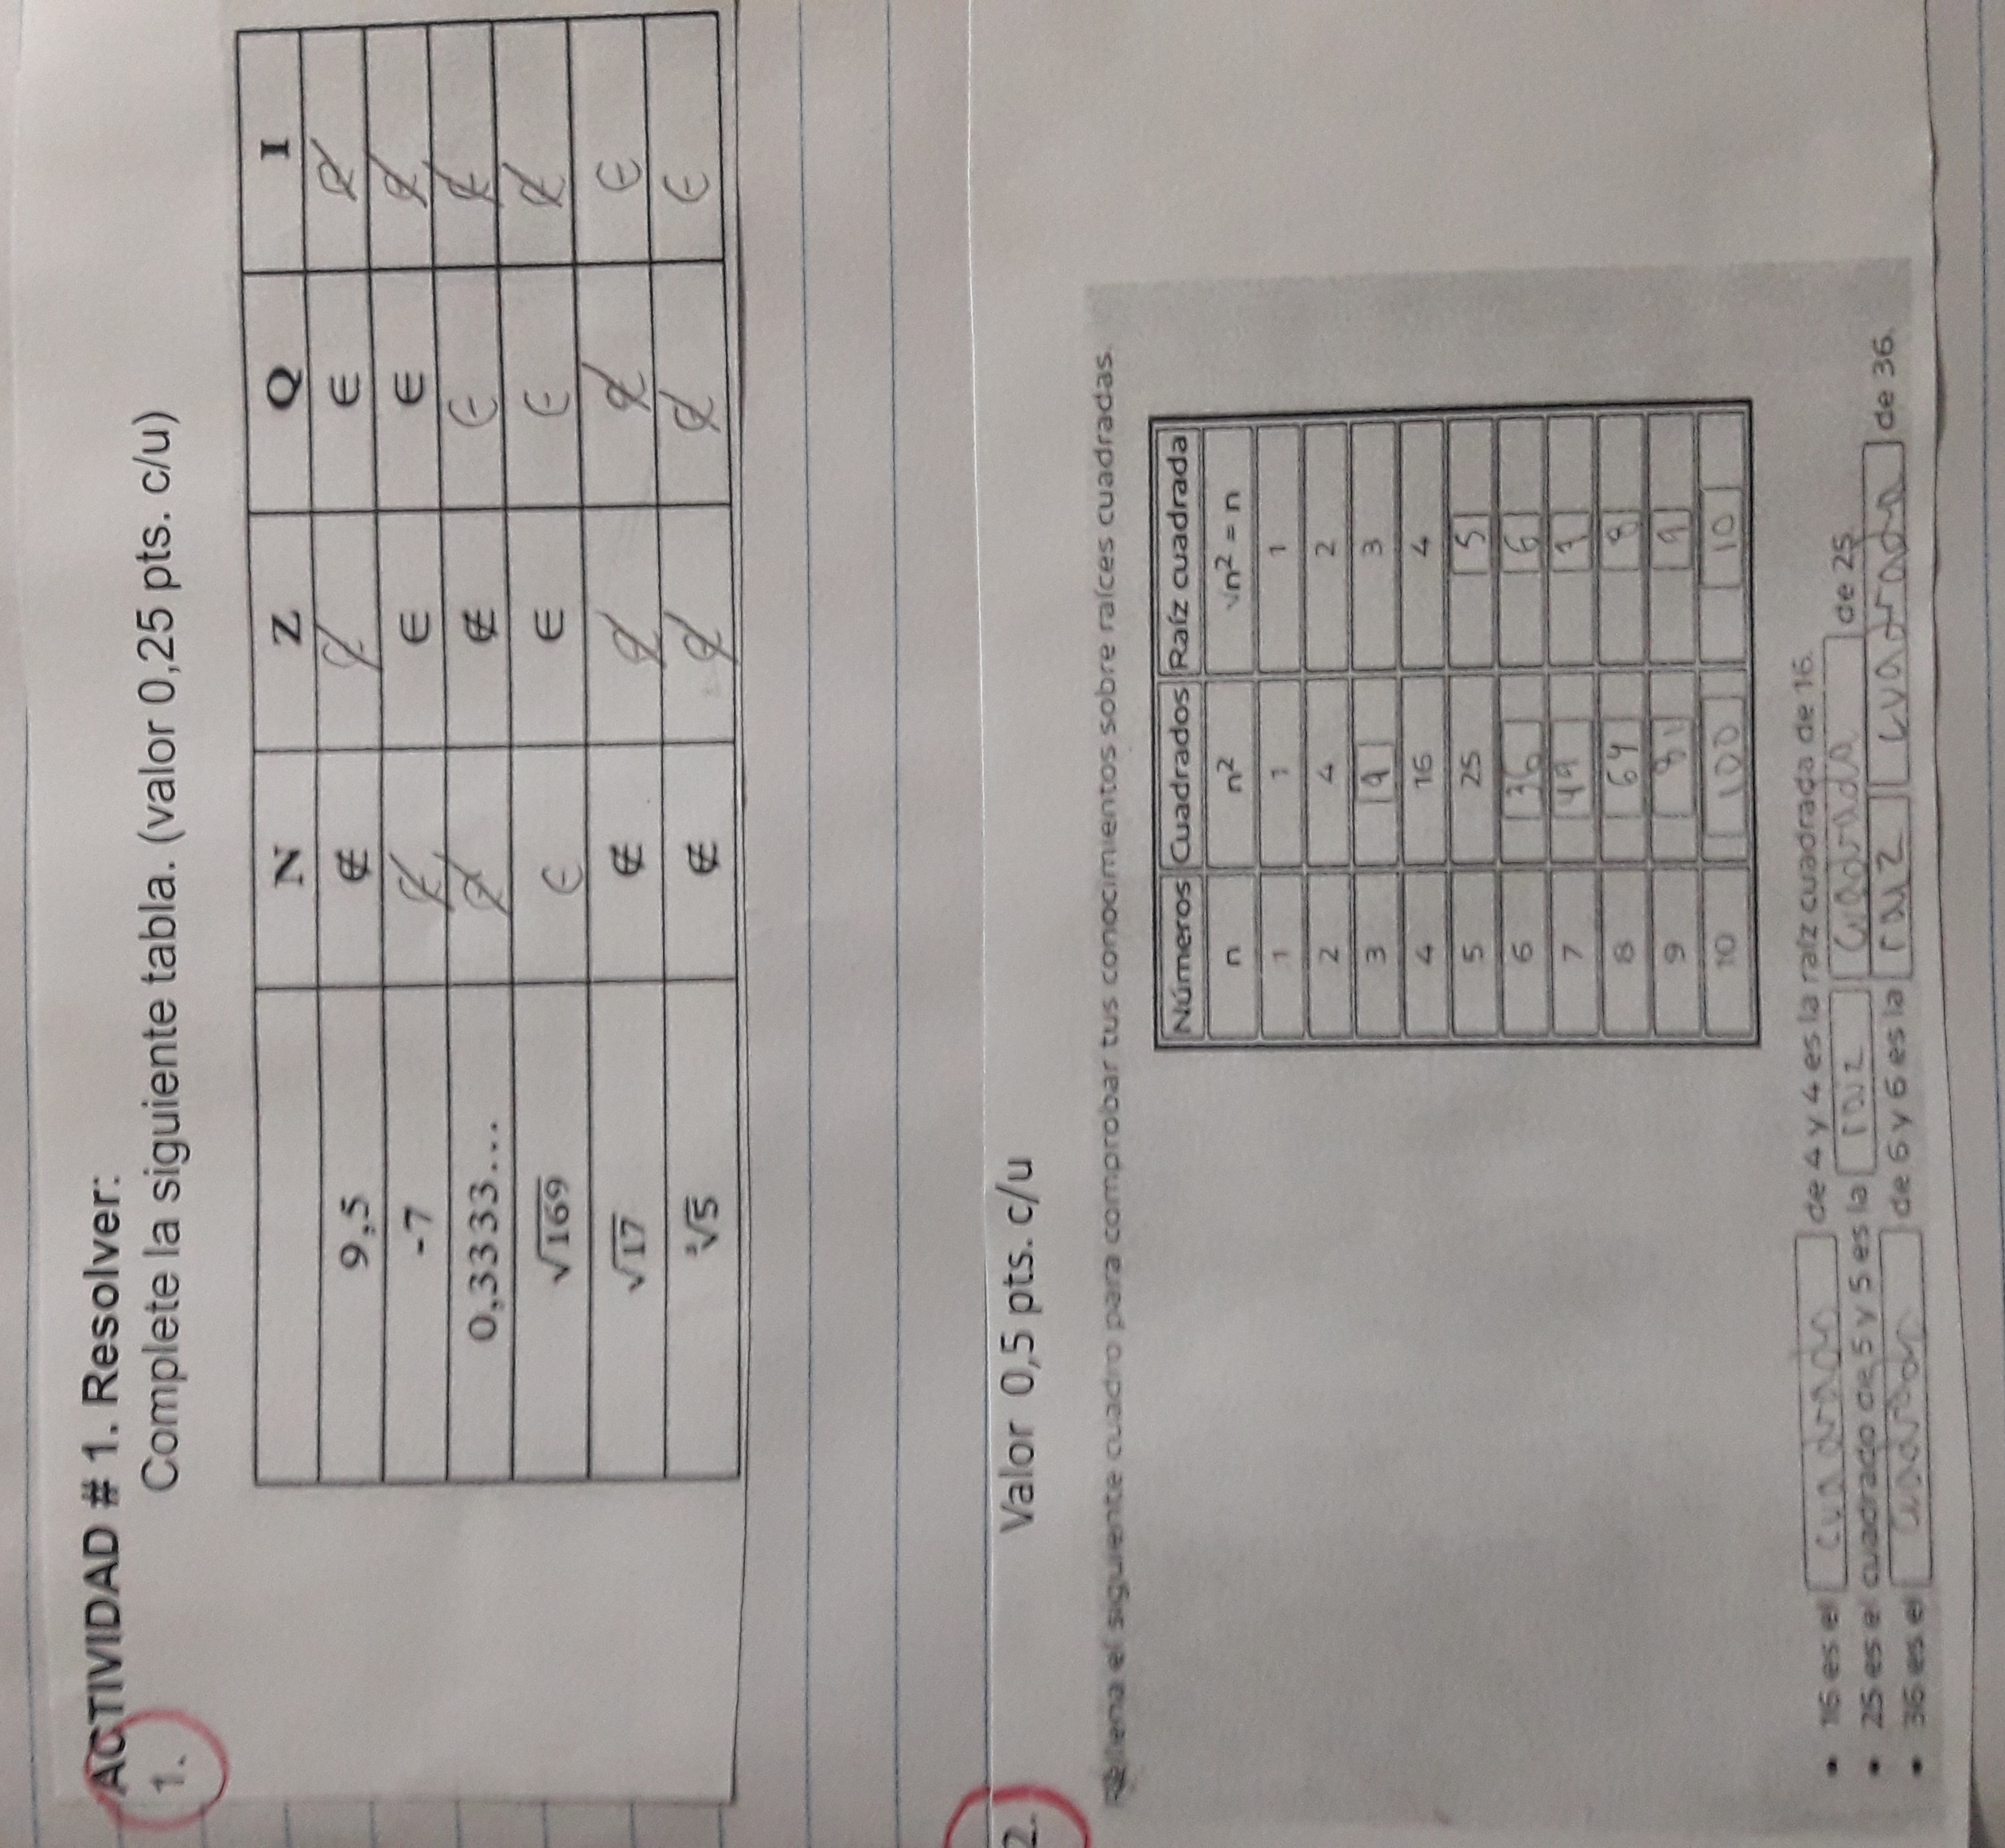 ACTIVIDAD # 1. Resolver:
1. Complete la siguiente tabla. (valor 0,25 pts. c/u)
N Z Q I
9,5 ∉ ∉ ∈ ∉
-7 ∉ ∈ ∈ ∉
0,3333... ∉ ∉ ∈ ∉
√169 ∈ ∈ ∈ ∉
√17 ∉ ∉ ∉ ∈
³√5 ∉ ∉ ∉ ∈
2. Valor 0,5 pts. c/u
Rellena el siguiente cuadro para comprobar tus conocimientos sobre raíces cuadradas.
Números Cuadrados Raíz cuadrada
n n² √n² = n
1 1 1
2 4 2
3 9 3
4 16 4
5 25 5
6 36 6
7 49 7
8 64 8
9 81 9
10 100 10
• 16 es el cuadrado de 4 y 4 es la raíz cuadrada de 16.
• 25 es el cuadrado de 5 y 5 es la raiz cuadrada de 25.
• 36 es el cuadrado de 6 y 6 es la raiz cuadrada de 36.